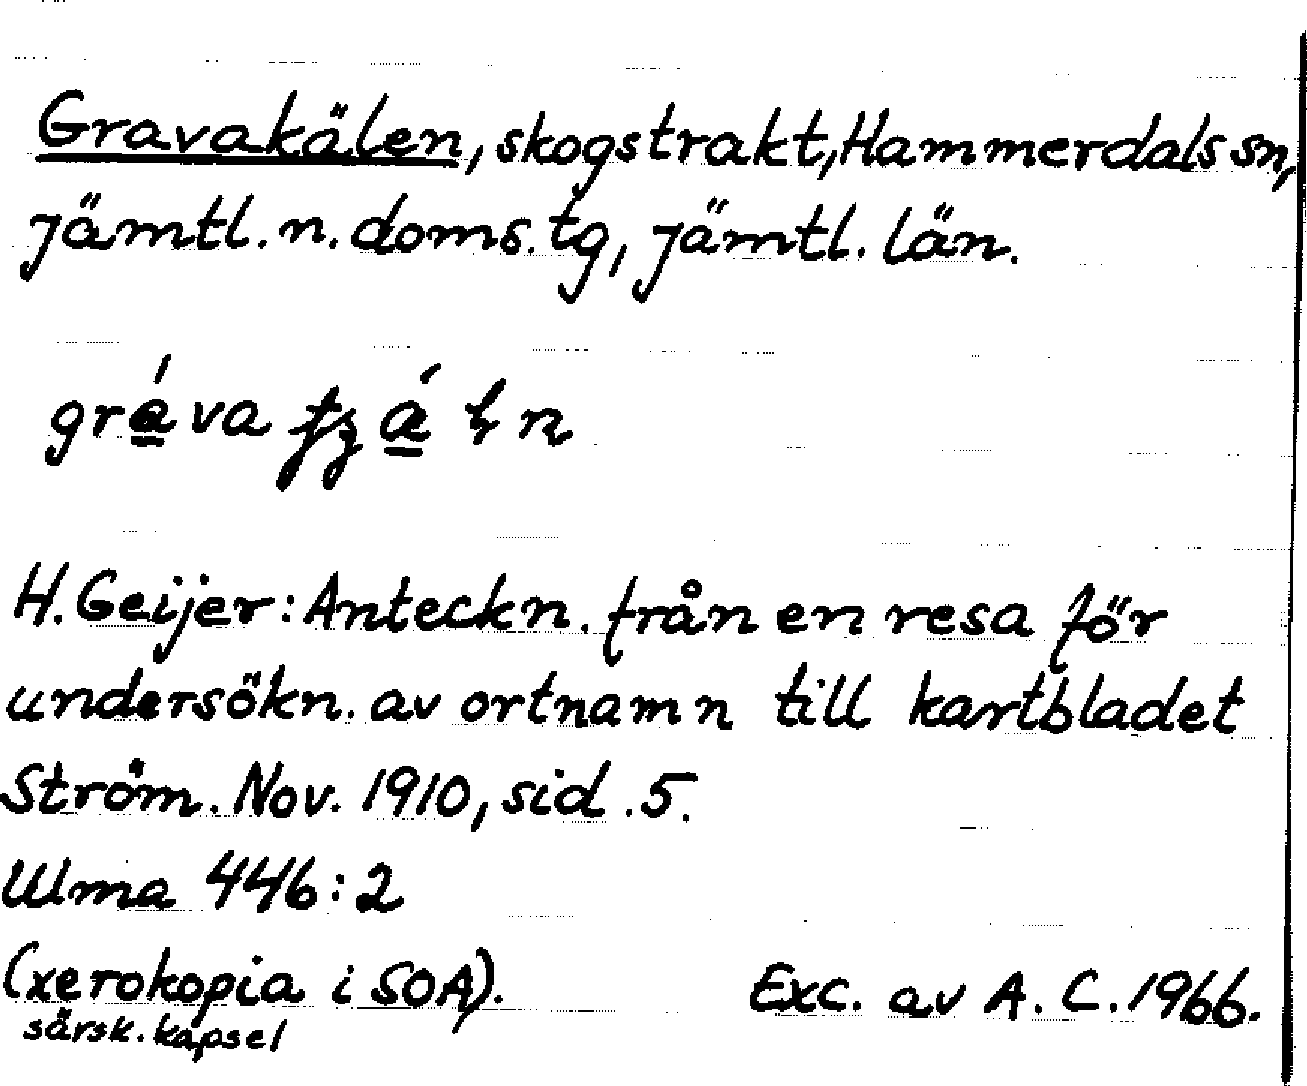 Gravakälen, skogstrakt, Hammerdals sn,
Jämtl. n. doms. tg, Jämtl. län.
gráva
H. Geijer: Anteckn. från en resa för
undersökn. av ortnamn till kartbladet
Ström. Nov. 1910, sid. 5.
Ulma 446:2
(xerokopia i SOA). Exc. av A. C. 1966.
särsk. kapsel